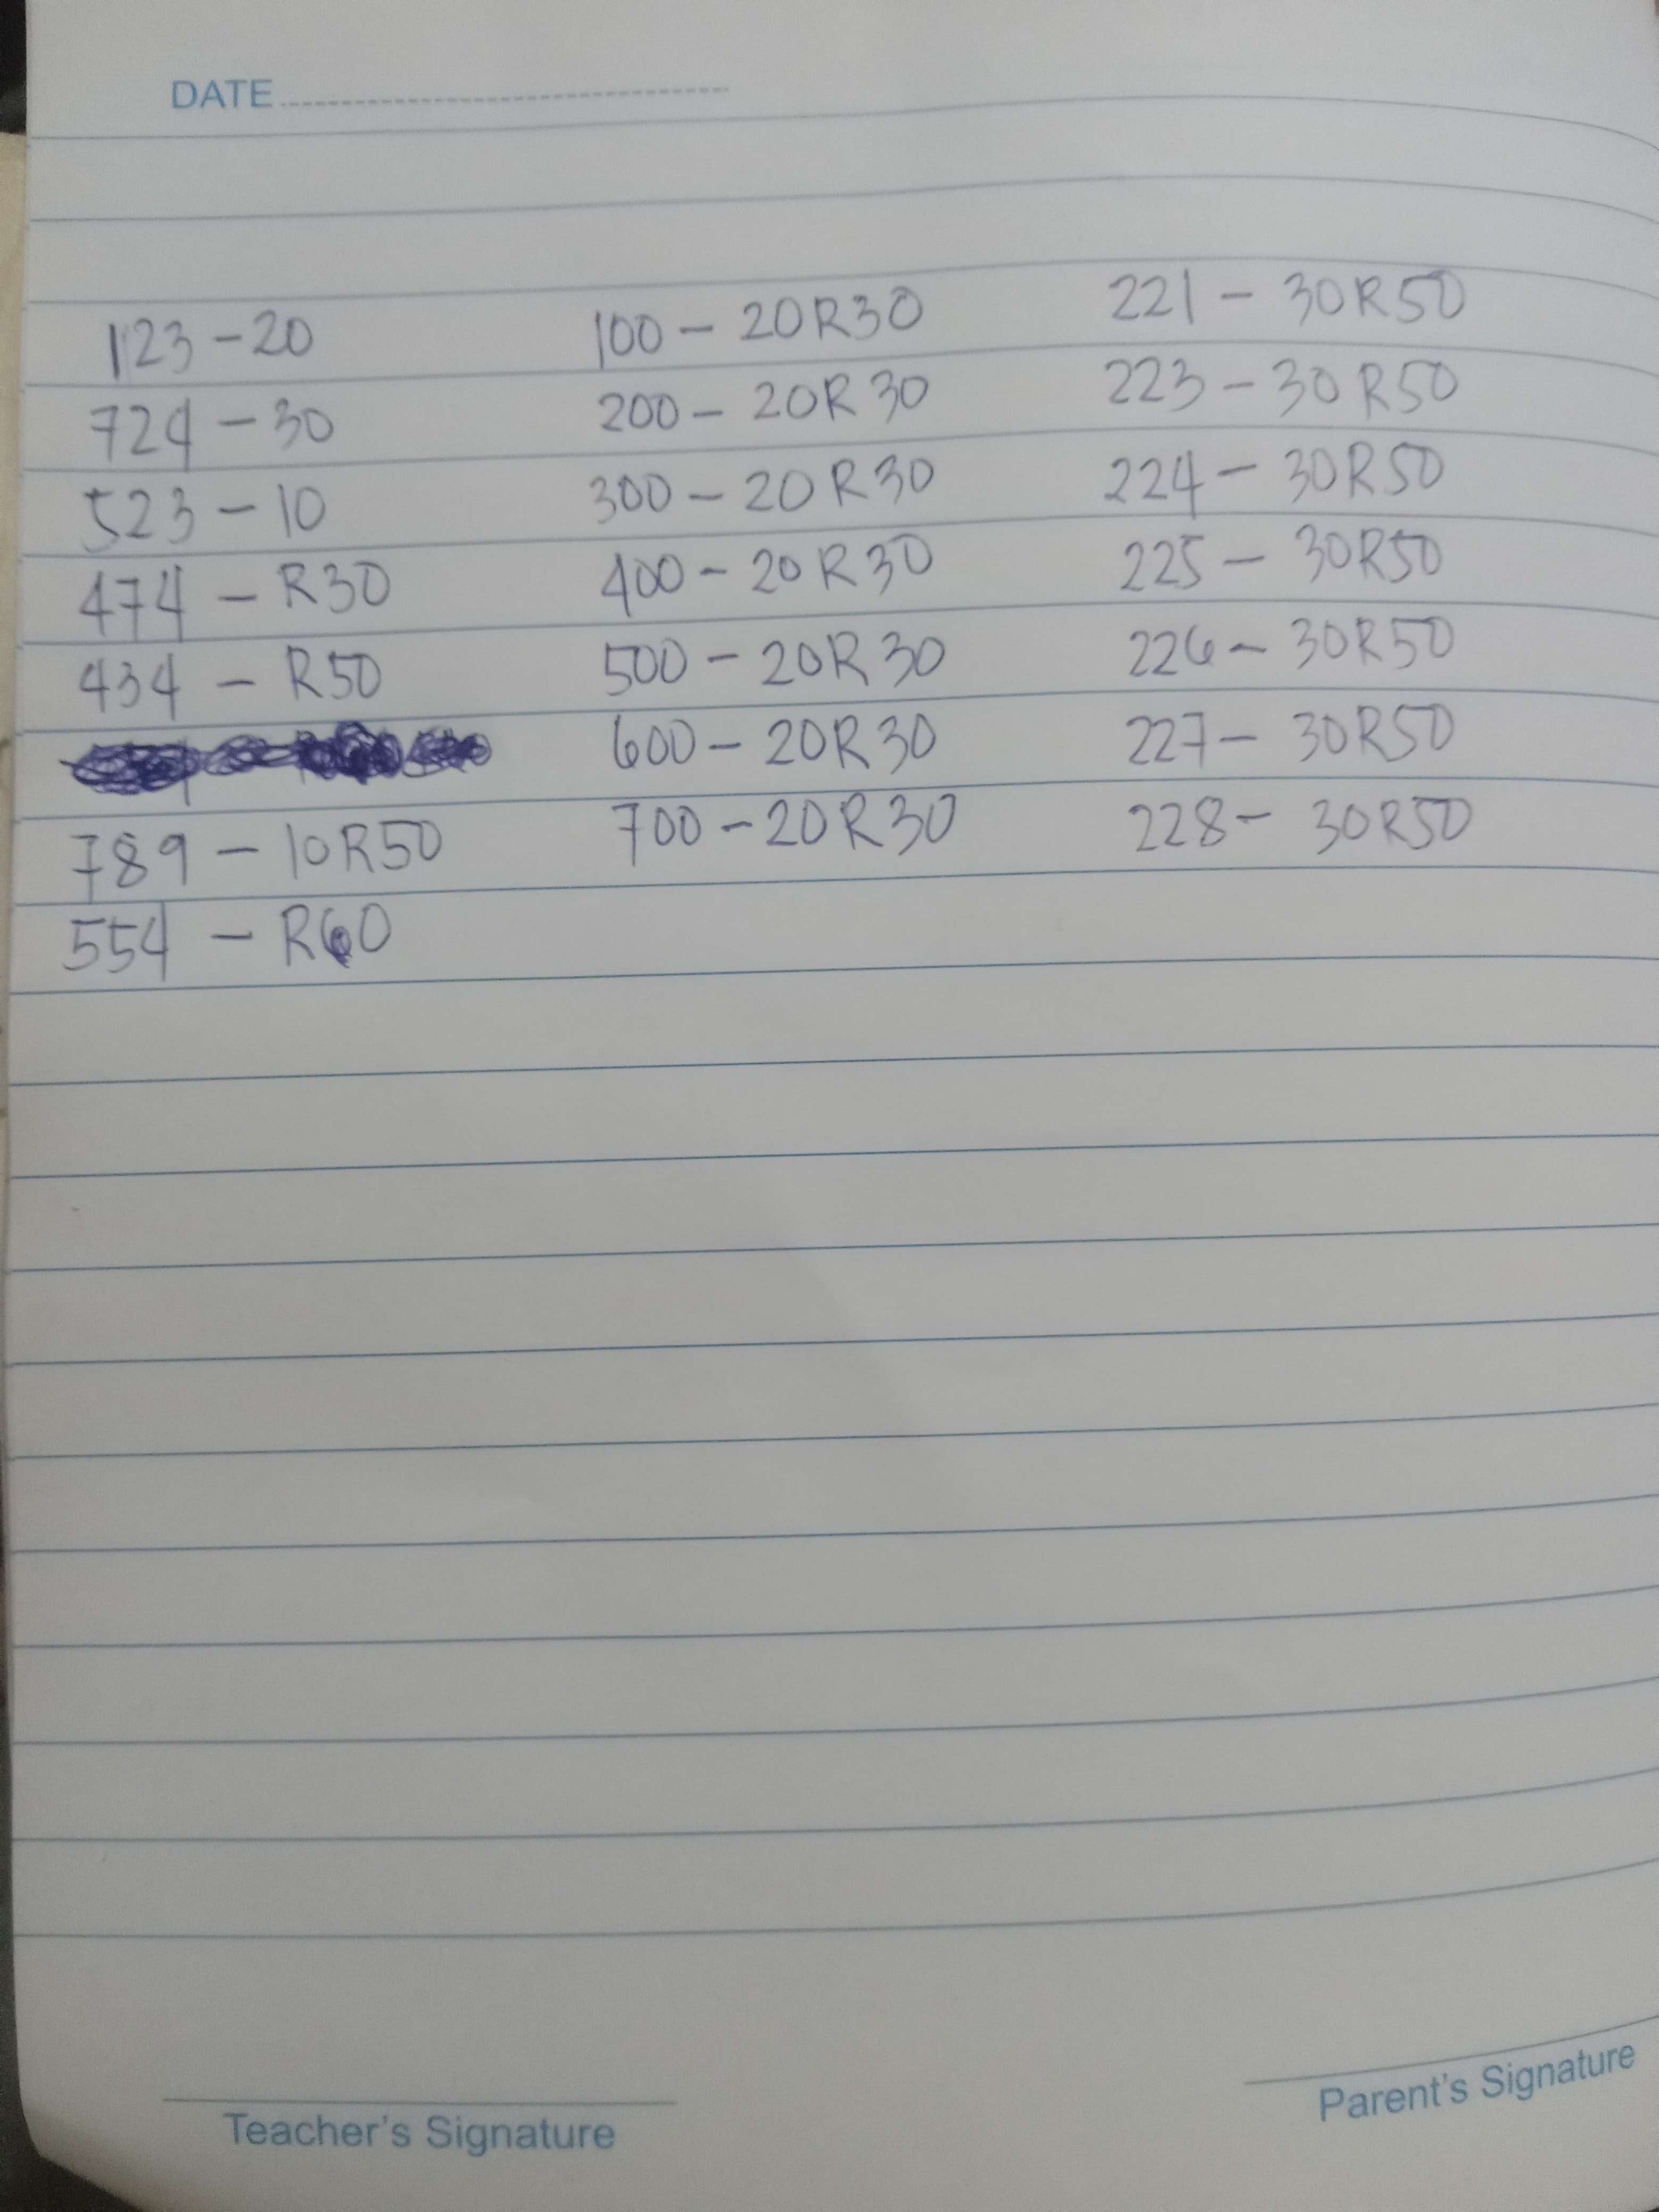 DATE
123 - 20
724 - 30
523 - 10
474 - R30
434 - R50
789 - 10R50
554 - R60
100 - 20R30
200 - 20R30
300 - 20R30
400 - 20R30
500 - 20R30
600 - 20R30
700 - 20R30
221 - 30R50
223 - 30R50
224 - 30R50
225 - 30R50
226 - 30R50
227 - 30R50
228 - 30R50
Teacher's Signature
Parent's Signature